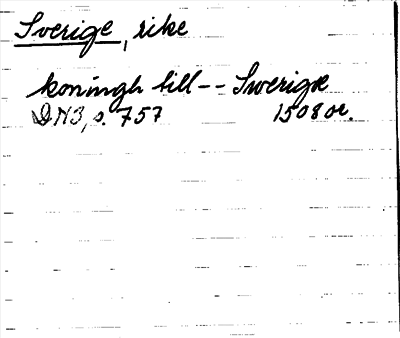 Sverige, rike
koningh till -- Swerige
DN3, s. 757 1508 or.